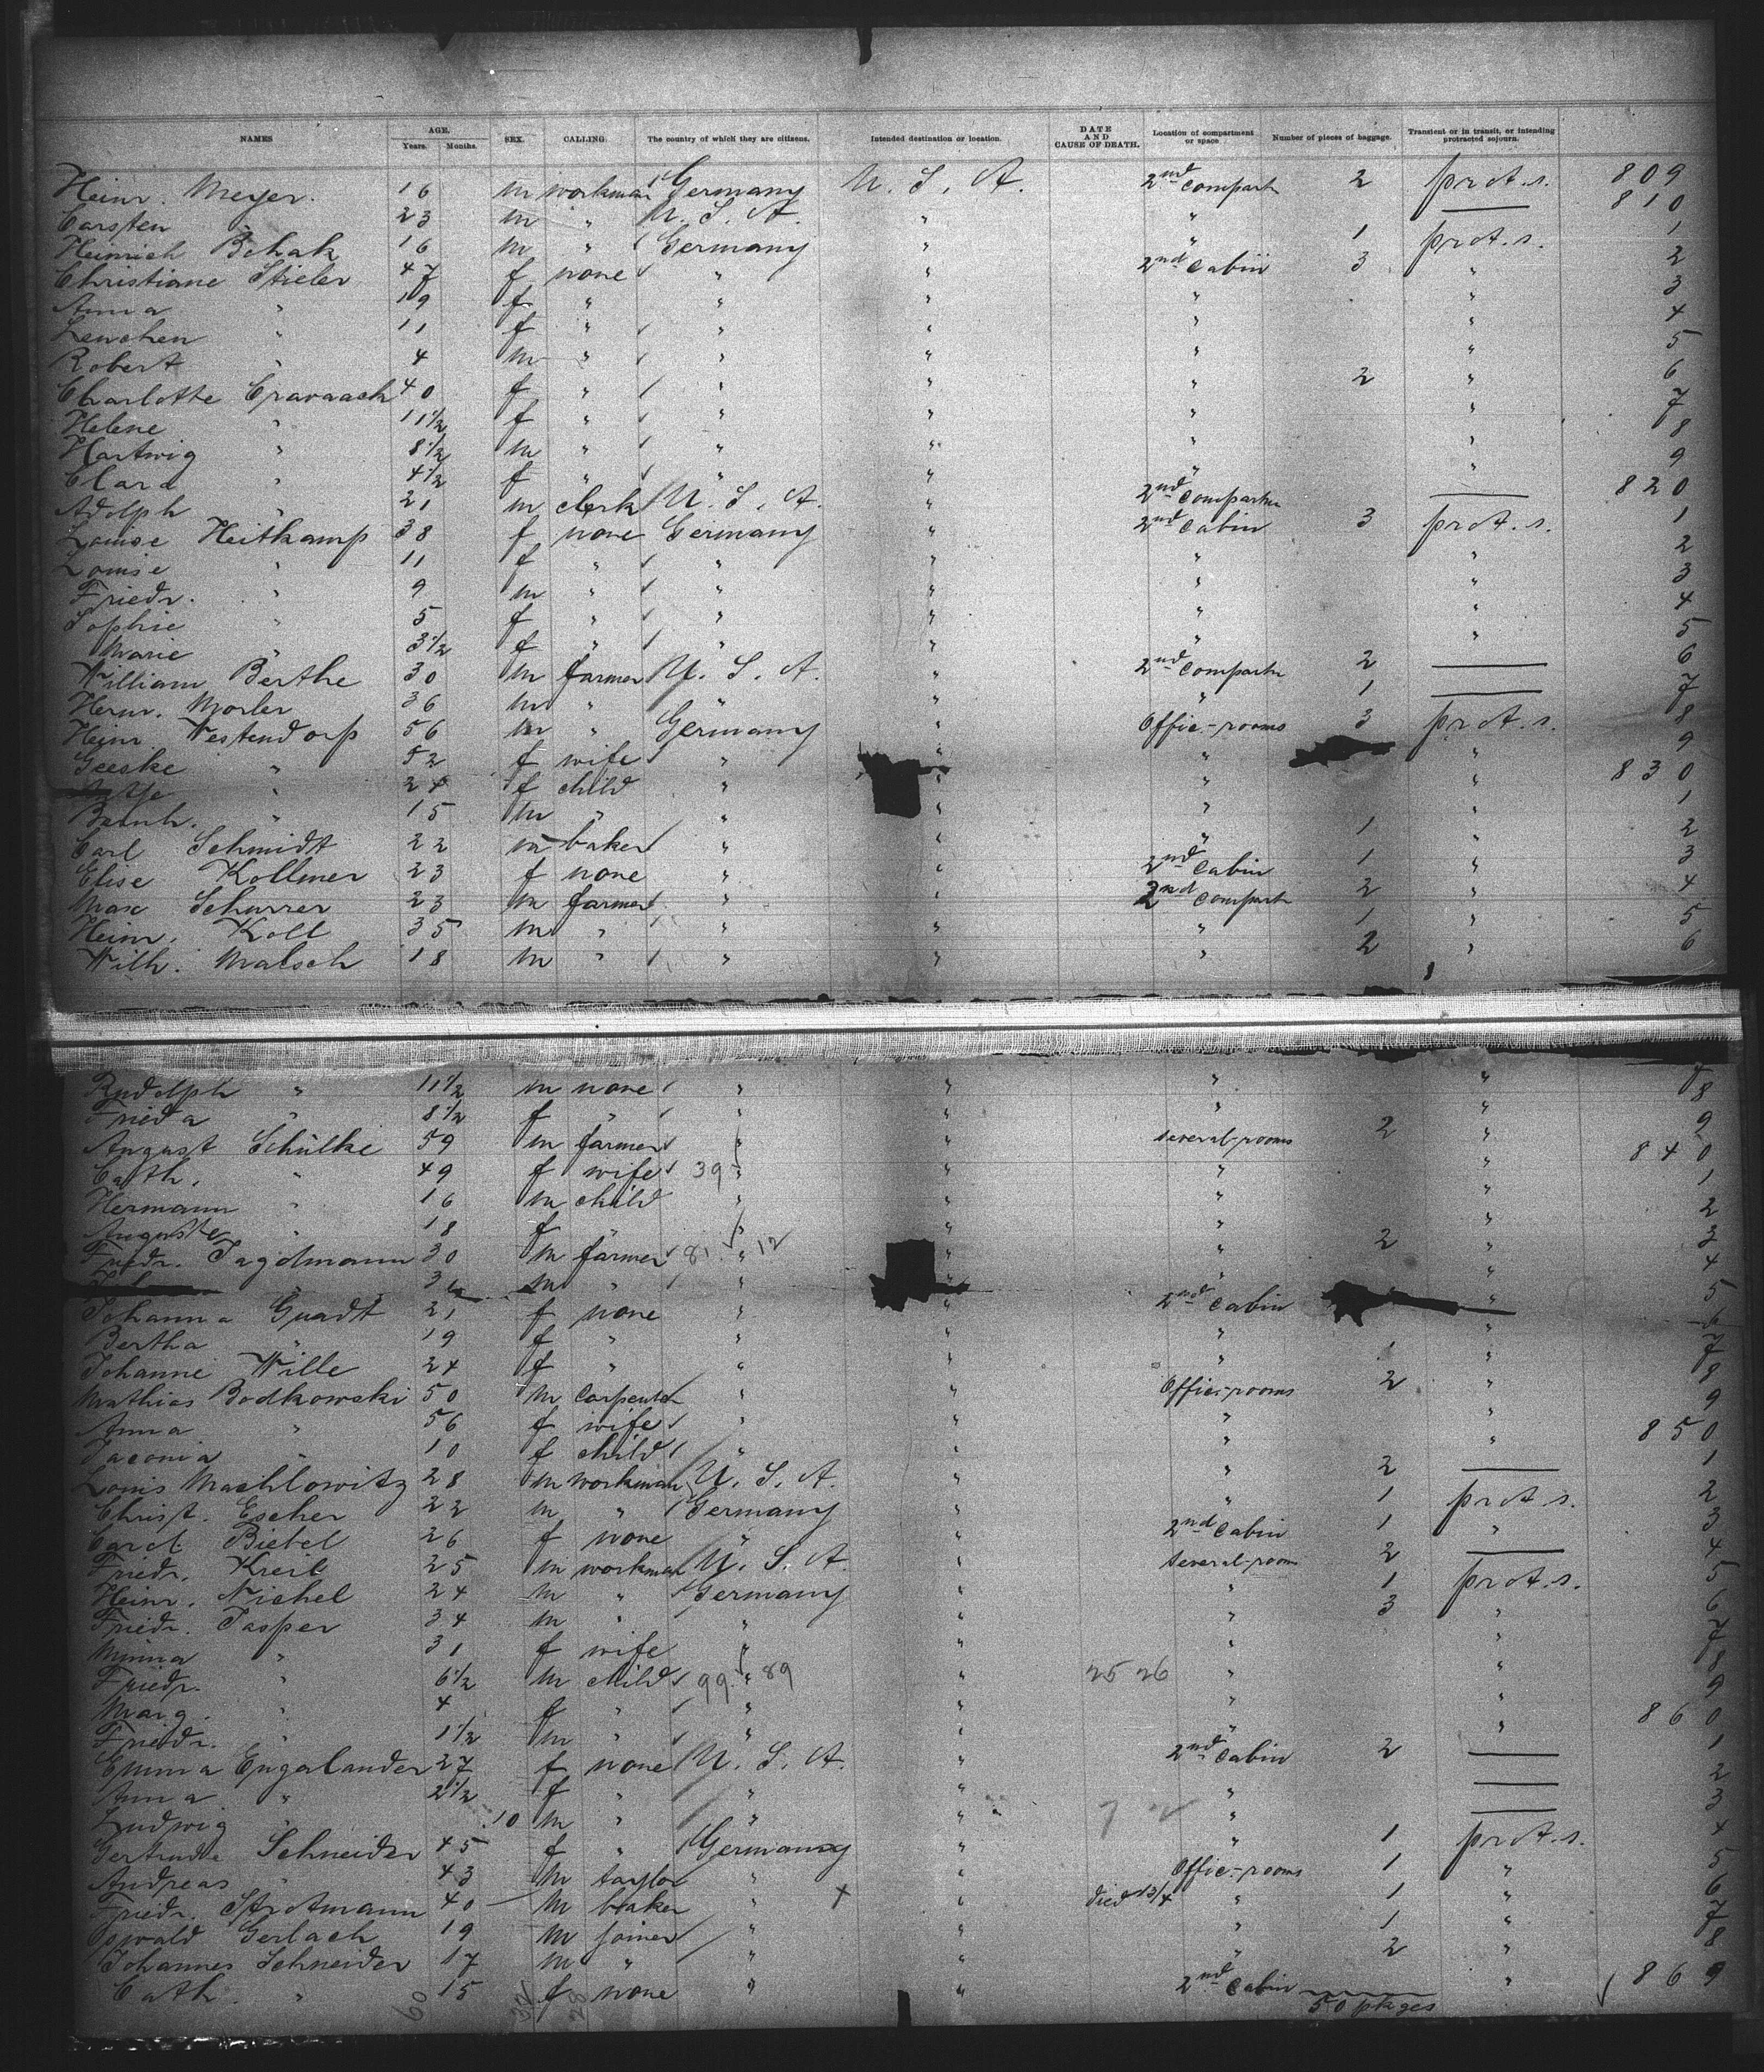 NAMES AGE. Years. Months. SEX. CALLING. The country of which they are citizens. Intended destination or location. DATE AND CAUSE OF DEATH. Location of compartment or space Number of pieces of baggage. Transient or in transit, or intending protracted sojourn.
Heinr. Meyer. 16 m workman Germany U. S. A. 2nd compart 2 prot. s. 809
Carsten 23 m " U. S. A. " " 810
Heinrich Schak 16 m " Germany " " 1 prot. s. 1
Christiane Stieler 47 f none " " 2nd Cabin 3 " 2
Anna " 19 f " " " " " 3
Lenchen " 11 f " " " " " 4
Robert " 4 m " " " " " 5
Charlotte 40 f " " " " 2 " 6
Helene " 11 1/2 f " " " " " 7
Hartwig " 8 1/2 m " " " " " 8
Clara " 4 1/2 f " " " " 9
Adolph " 21 m clerk U. S. A. " 2nd compartm 820
Louise Heitkamp 38 f none Germany " 2nd Cabin 3 prot. s. 1
Louise " 11 f " " " " " 2
Friedr. " 9 m " " " " " 3
Sophie " 5 f " " " " " 4
Marie " 3 1/2 f " " " " " 5
William Berthe 30 m farmer U. S. A. " 2nd compartm 2 6
Herm. Morler 36 m " " " " 1 7
Heinr. Westendorp 56 m " Germany " Office-rooms 3 prot. s. 8
Geeske " 52 f wife " " " " 9
" 24 f child " " " " 830
Bernh. " 15 m " " " " 1
Carl Schmidt 22 m baker " " " 1 " 2
Elise Kollmer 23 f none " " 2nd Cabin 1 " 3
Max Schurrer 23 m farmer " " 2nd compart 2 " 4
Heinr. Koll 35 m " " " " 1 " 5
Wilh. Malsch 18 m " " " " 2 " 6
Rudolph " 11 1/2 m none " " " " 8
Frieda " 8 1/2 f " " " " "
August Schülke 59 m farmer " " several-rooms 2 " 9
Cath. " 49 f wife 39 " " " " 840
Hermann " 16 m child " " " " 1
Auguste " 18 f " " " " " 2
Friedr. Jagdmann 30 m farmer 81 " 12 " " 2 " 3
m " " " " 4
Johanna Guadt 21 f none " " 2nd Cabin " 5
Bertha " 19 f " " " " " 6
Johanne Wille 24 f " " " " 1 " 7
Mathias Bodkowski 50 m Carpenter " " Office-rooms 2 " 8
Anna " 56 f wife " " " " 9
10 f child " " " " 850
Louis Machlowitz 28 m workman U. S. A. " " 2 1
Christ. Escher 22 m " Germany " " 1 prot. s. 2
Carol. Biebel 26 f none " " 2nd Cabin 1 " 3
Friedr. Kreil 25 m workman U. S. A. " several-room 2 4
Heinr. Nichel 24 m " Germany " " 1 prot. s. 5
Friedr. Jasper 34 m " " " " 3 " 6
Minna " 31 f wife " " " " 7
Friedr. " 6 1/2 m child 99 " 89 " 25 26 " " 8
Marg. " 4 f " " " " " 9
Friedr. " 1 1/2 m " " " " " 860
Emma Engalander 27 f none U. S. A. " 2nd Cabin 2 1
Anna " 2 1/2 f " " " " 2
Ludwig " 10 m " " " 7 2 " 3
Gertrude Schneider 45 f " Germany " " 1 prot. s. 4
Andreas " 43 m taylor " " Office-rooms 1 " 5
Friedr. Strotmann 40 m baker " x " died 13/4 " 1 " 6
Oswald Gerlach 19 m joiner " " " 1 " 7
Johannes Schneider 17 m " " " " 2 " 8
Cath. " 15 f none " " 2nd Cabin " 869
60 32 28 50 pkges